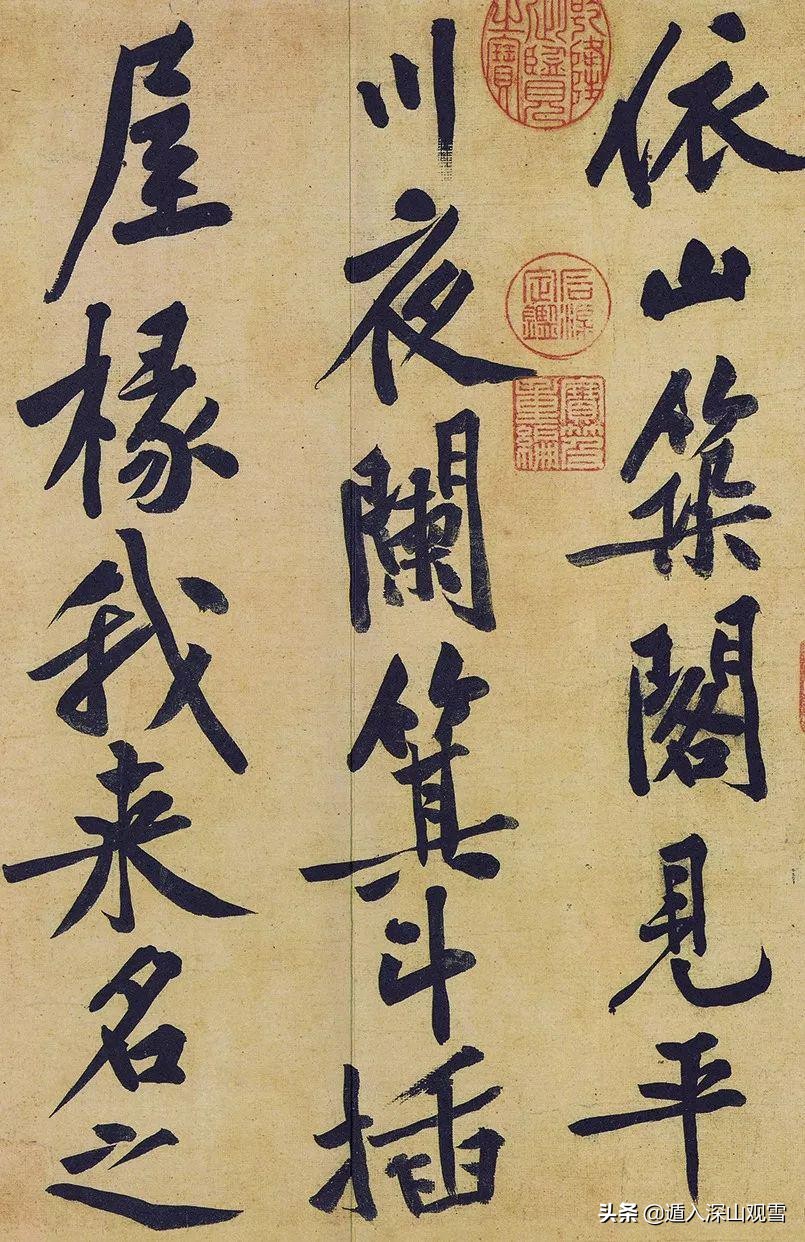 依山築閣見平
川夜闌箕斗插
屋椽我来名之
乾隆御覽之寶
石渠定鑑
寶笈重編
头条 @遁入深山观雪